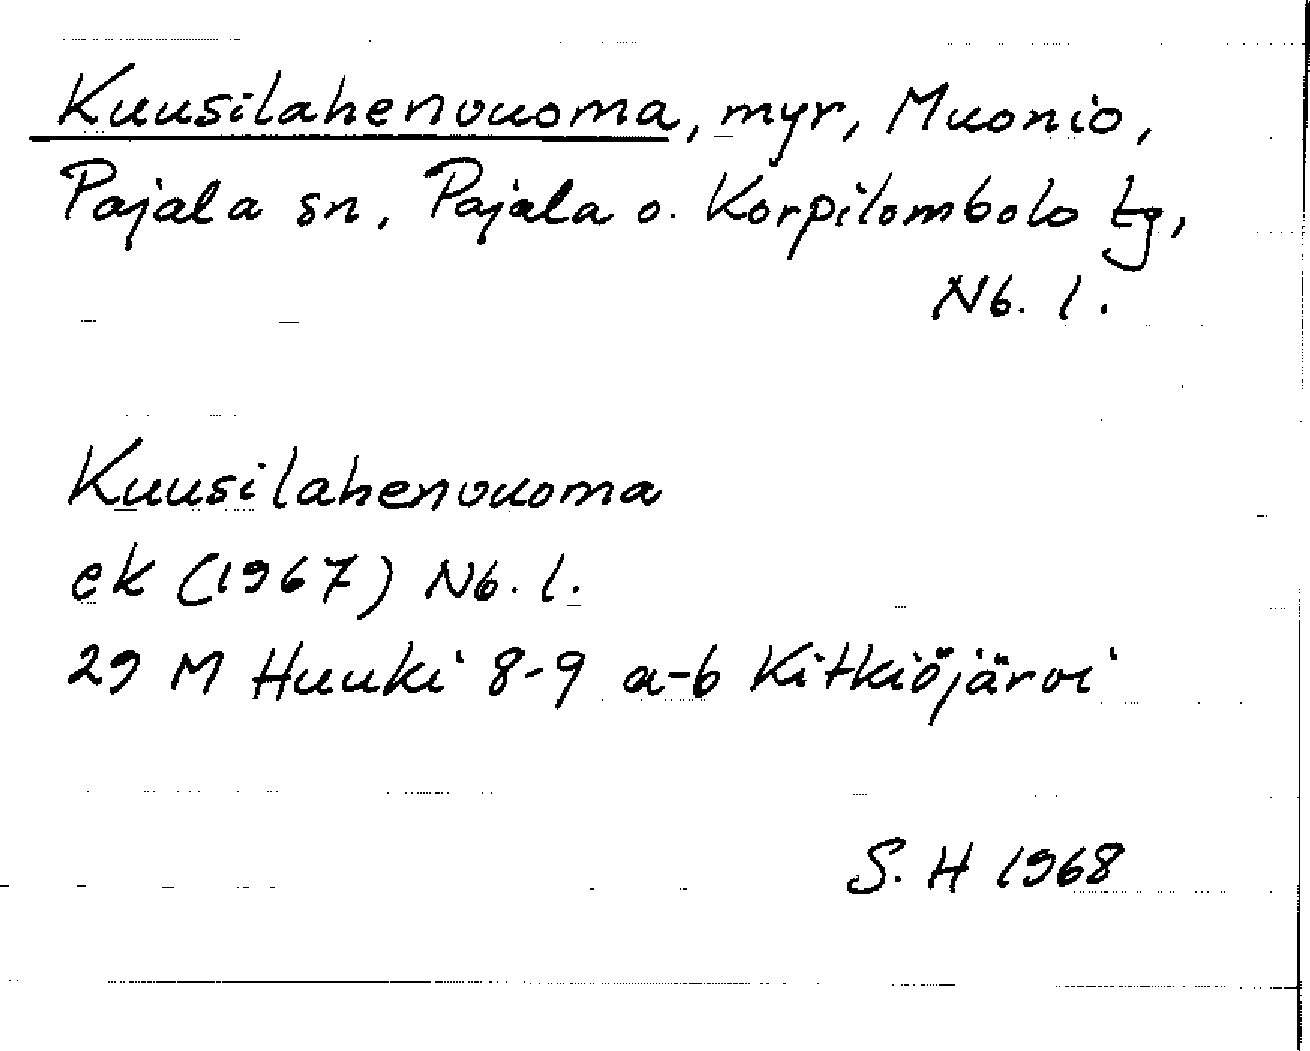 Kuusilahenvuoma, myr, Muonio,
Pajala sn, Pajala o. Korpilombolo tg,
Nb. l.
Kuusilahenvuoma
ek (1967) Nb. l.
29 M Huuki 8-9 a-b Kitkiöjärvi
S. H 1968